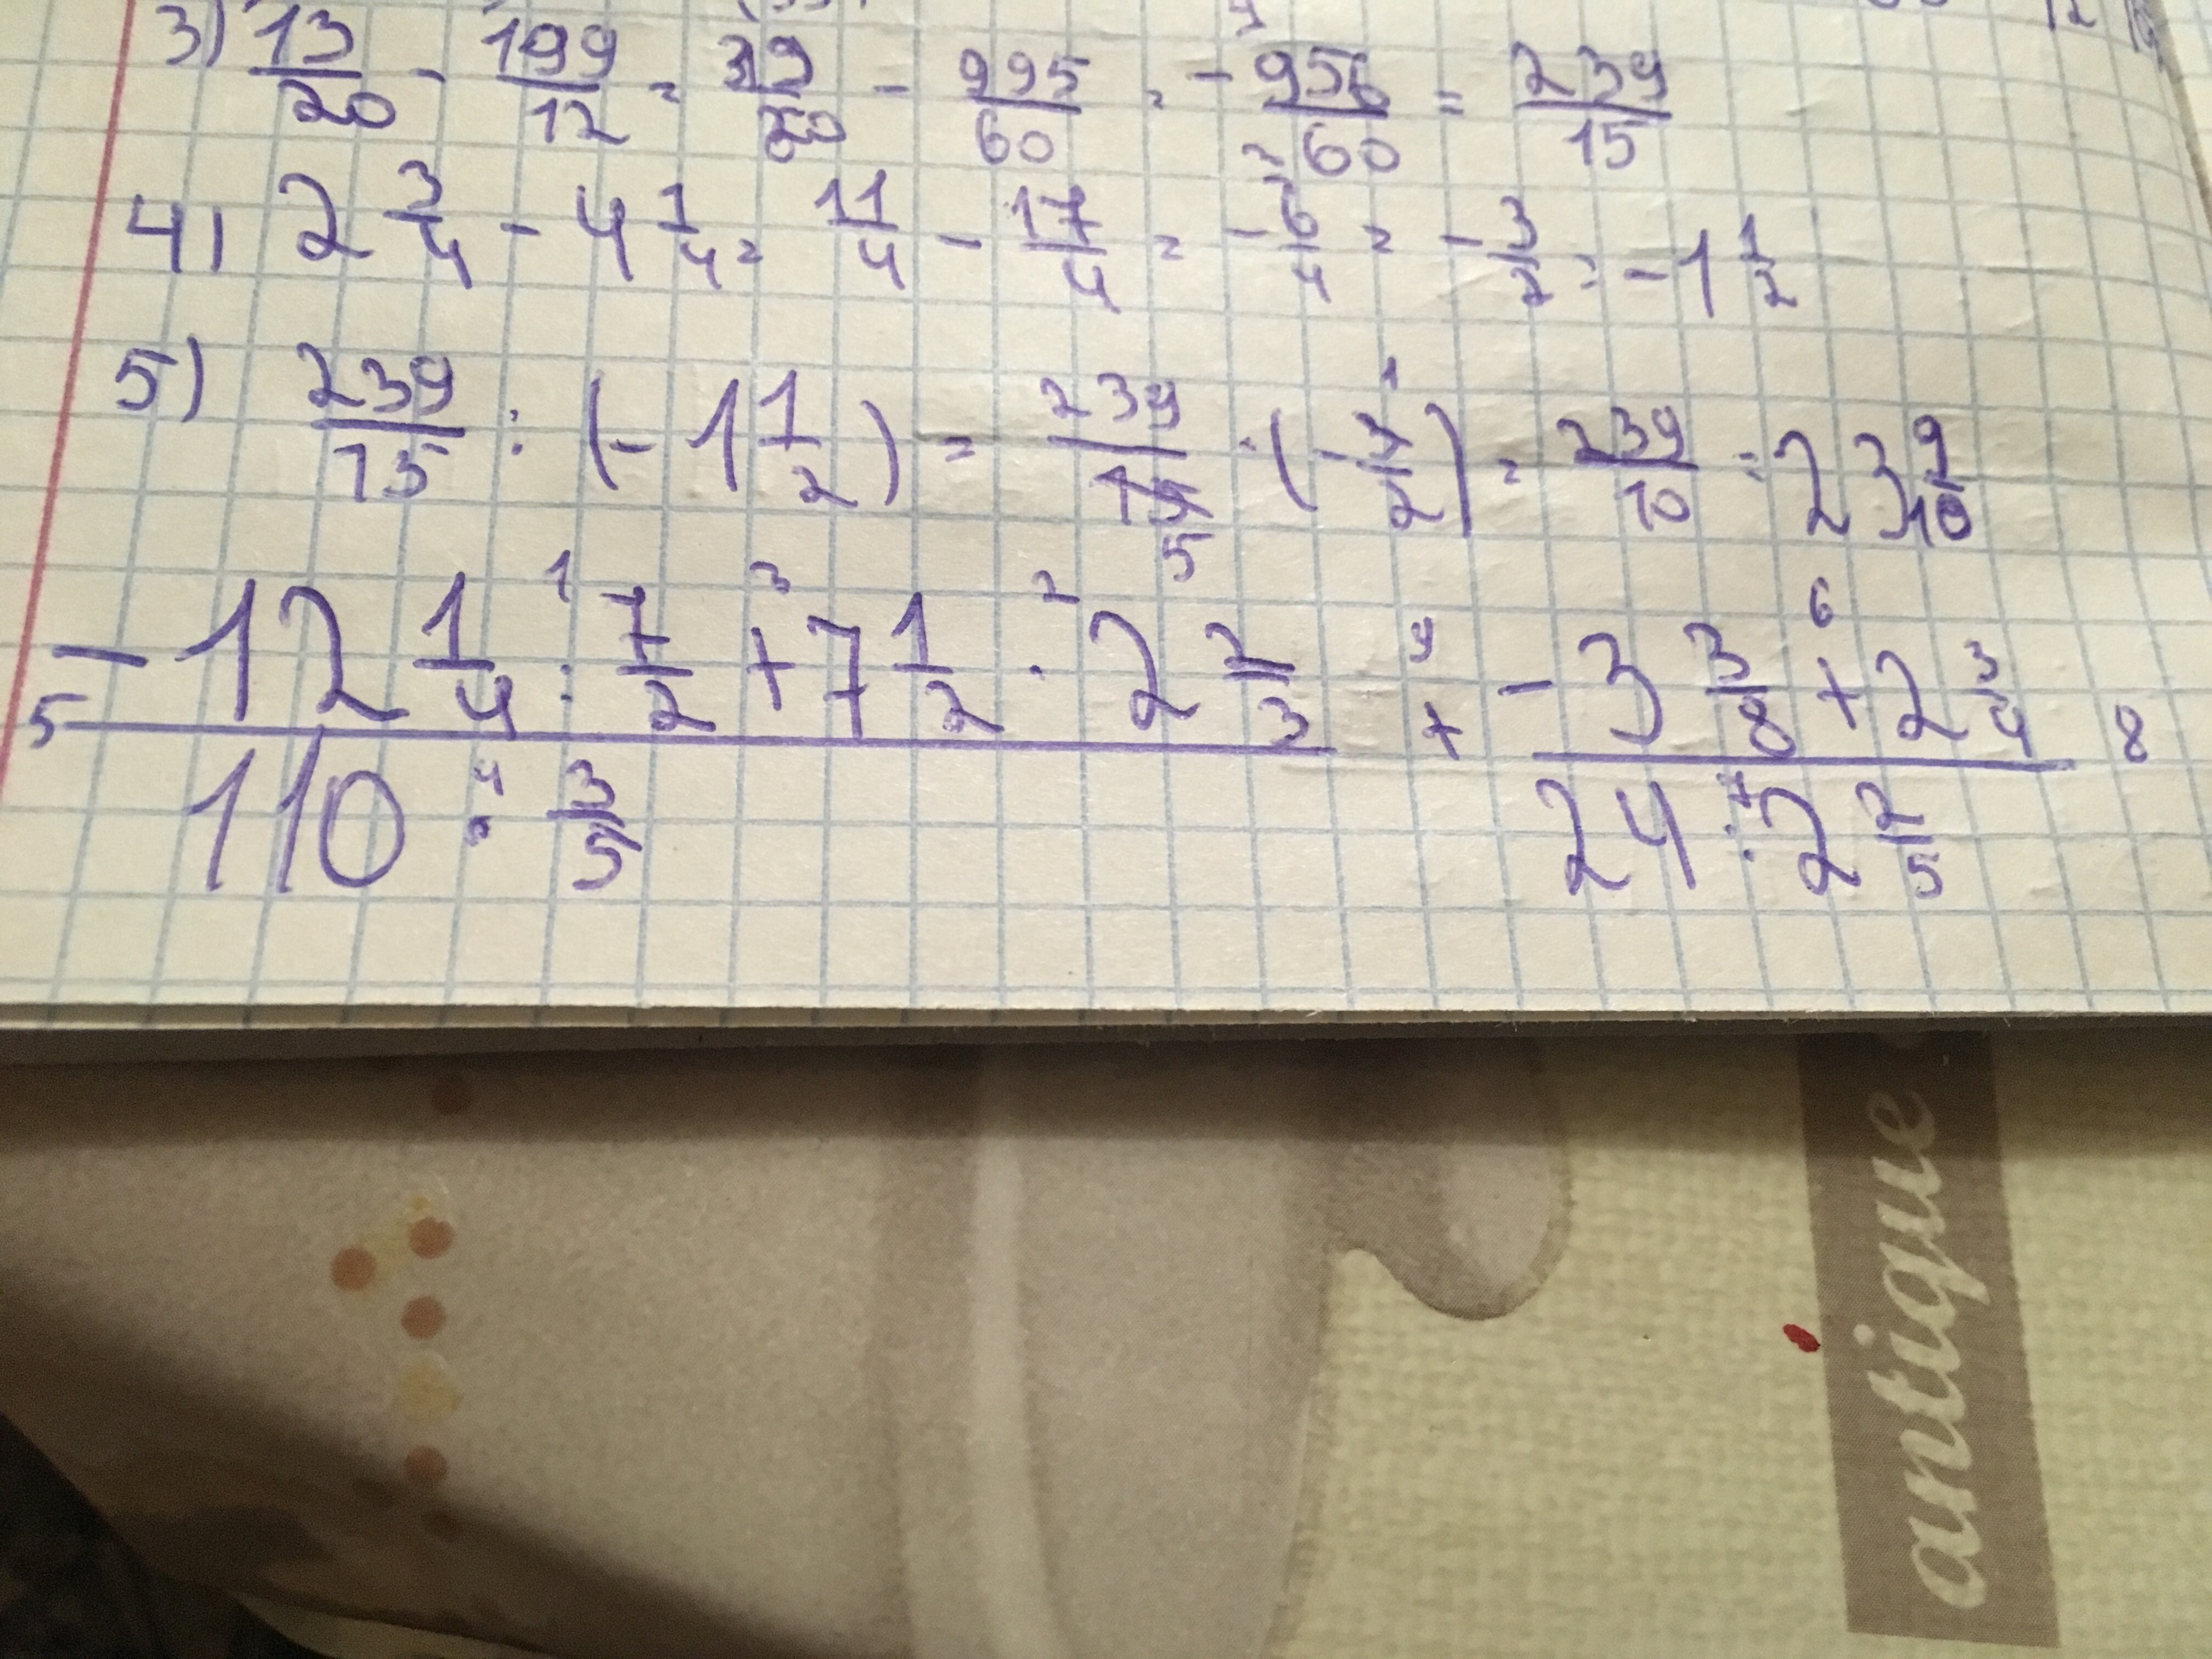 3) 13/20 - 199/12 = 39/60 - 995/60 = - 956/60 = 239/15
4) 2 3/4 - 4 1/4 = 11/4 - 17/4 = - 6/4 = - 3/2 = -1 1/2
5) 239/15 : (-1 1/2) = 239/15 · (- 1/2) = 239/10 = 23 9/10
-12 1/4 : 7/2 + 7 1/2 · 2 2/3 + -3 3/8 + 2 3/4
110 : 3/5 24 : 2 2/5
antique